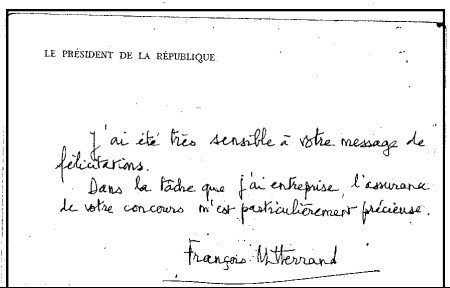 LE PRÉSIDENT DE LA RÉPUBLIQUE
J'ai été très sensible à votre message de
félicitations.
Dans la tâche que j'ai entreprise, l'assurance
de votre concours m'est particulièrement précieuse.
François Mitterrand